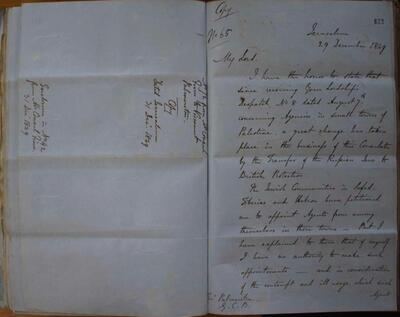 Copy
No 65
Jerusalem
29 December 1849
My Lord.
I have the honor to state that
since receiving Your Lordship's
Despatch No 8 dated August 7th
concerning Agencies in small towns of
Palestine, a great change has taken
place in the business of this Consulate
by the Transfer of the Russian Jews to
British Protection.
The Jewish Communities in Safed,
Tiberias and Hebron have petitioned
me to appoint Agents from among
themselves in those towns — But I
have explained to them that of myself
I have no authority to make such
appointments — and in consideration
of the contempt and ill usage which such
Agents
Palmerston
G. C. B.
Viscount
Palmerston
Copy
Dated Jerusalem
31 Dec. 1849
31 Dec 1849